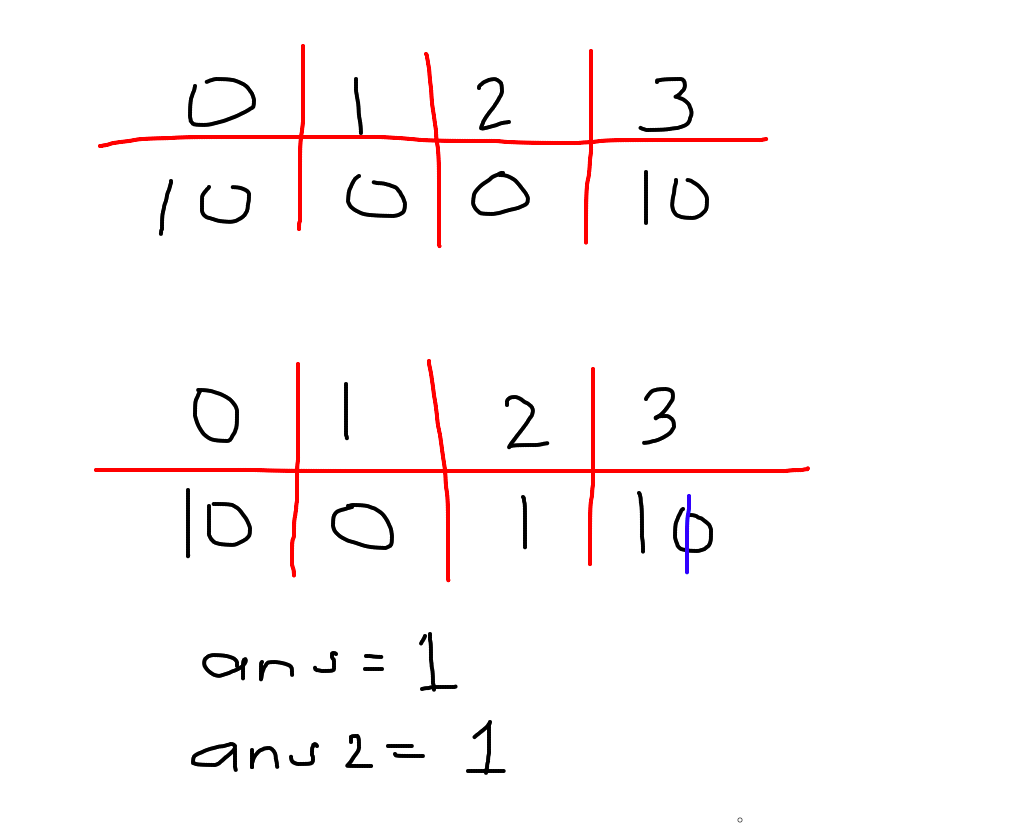 0 1 2 3
10 0 0 10
0 1 2 3
10 0 1 10
ans = 1
ans 2 = 1